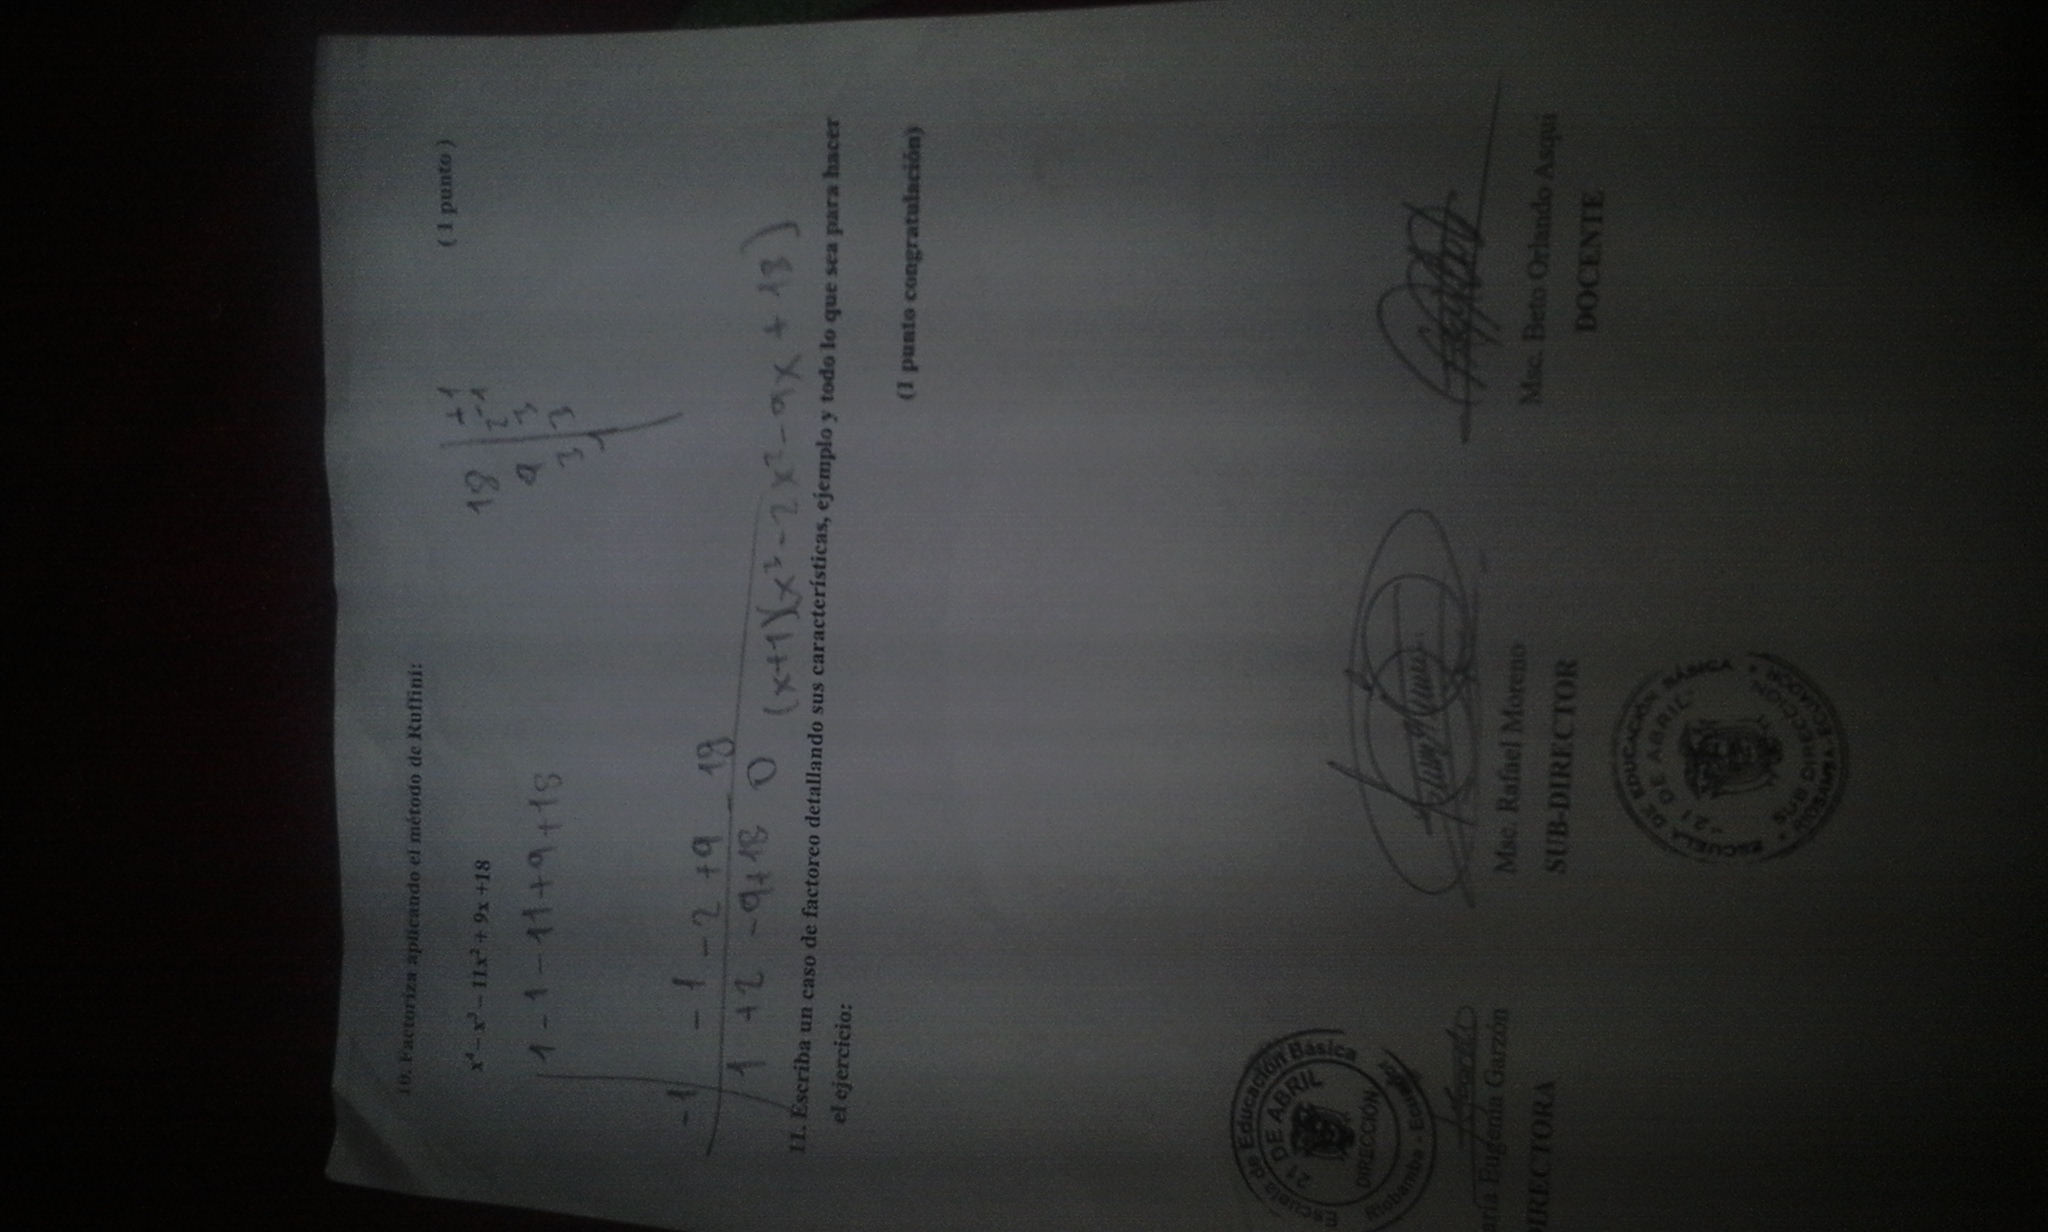 10. Factoriza aplicando el método de Ruffini:
( 1 punto )
x⁴ – x³ – 11x² + 9x +18
1 - 1 - 11 + 9 + 18
+1
18 -1
2
9 3
3 3
1
-1 - 1 - 2 + 9 - 18
1 +2 - 9 + 18 0 (x+1)(x³ - 2x² - 9x + 18)
11. Escriba un caso de factoreo detallando sus características, ejemplo y todo lo que sea para hacer
el ejercicio:
(1 punto congratulación)
Escuela de Educación Básica
21 DE ABRIL
DIRECCIÓN
Riobamba - Ecuador
aría Eugenia Garzón
Msc. Rafael Moreno
Msc. Beto Orlando Asqui
DIRECTORA
SUB-DIRECTOR
DOCENTE
ESCUELA DE EDUCACIÓN BÁSICA
"21 DE ABRIL"
SUB DIRECCIÓN
RIOBAMBA - ECUADOR